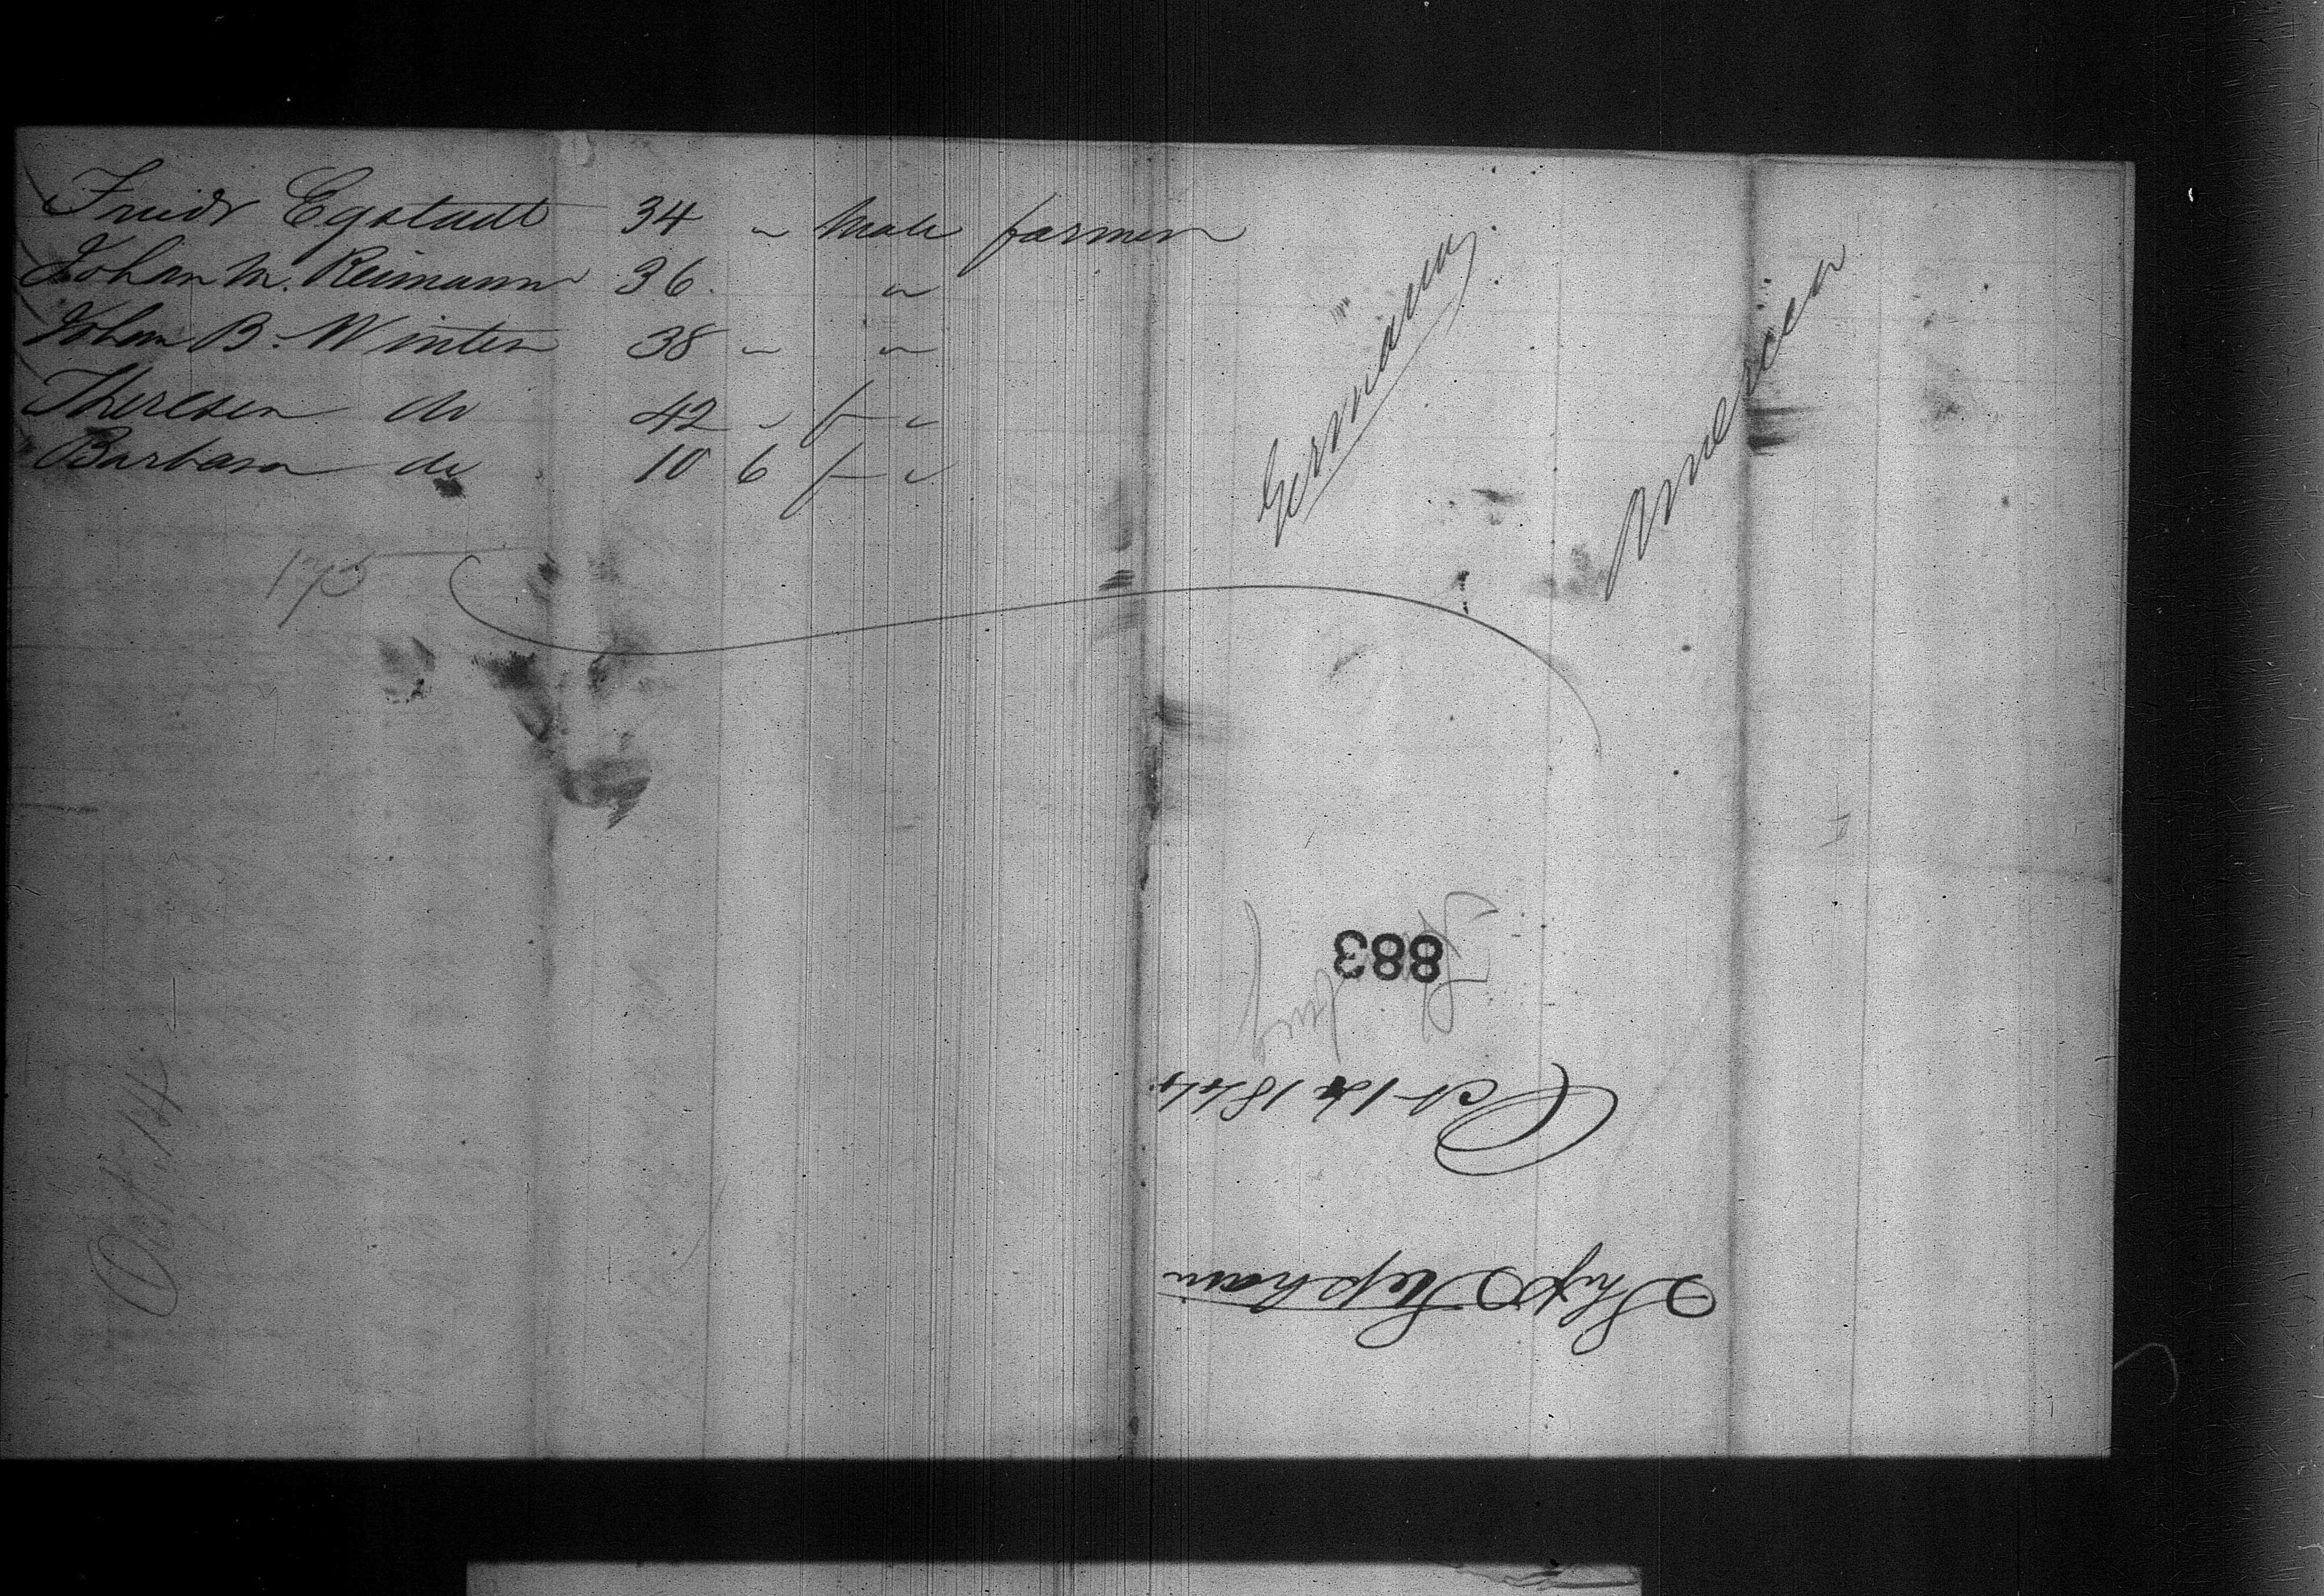 Friedr Egstadt 34 " Male farmer Germany America
Johan M. Reimann 36. "
Johan B. Winter 38 " "
Theresea do 42 " f "
Barbara do 10 6 f "
175
883
Oct 14 1844
Oct. 14
Ship Stephani